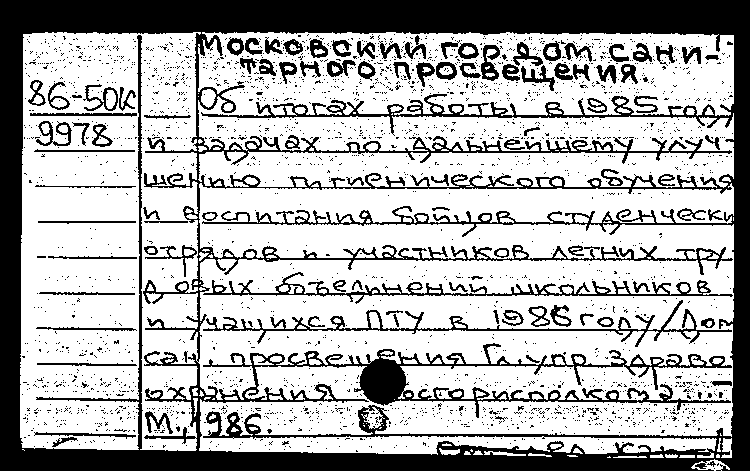 Московский гор. дом сани-
тарного просвещения.
86-50К Об итогах работы в 1985 году
9978 и задачах по дальнейшему улуч-
шению гигиенического обучения
и воспитания бойцов студенчески
отрядов и участников летних тру-
довых объединений школьников
и учащихся ПТУ в 1986 году/Дом
сан. просвещения Гл. упр. здраво-
охранения осгорисполкома,...-
М., 1986.